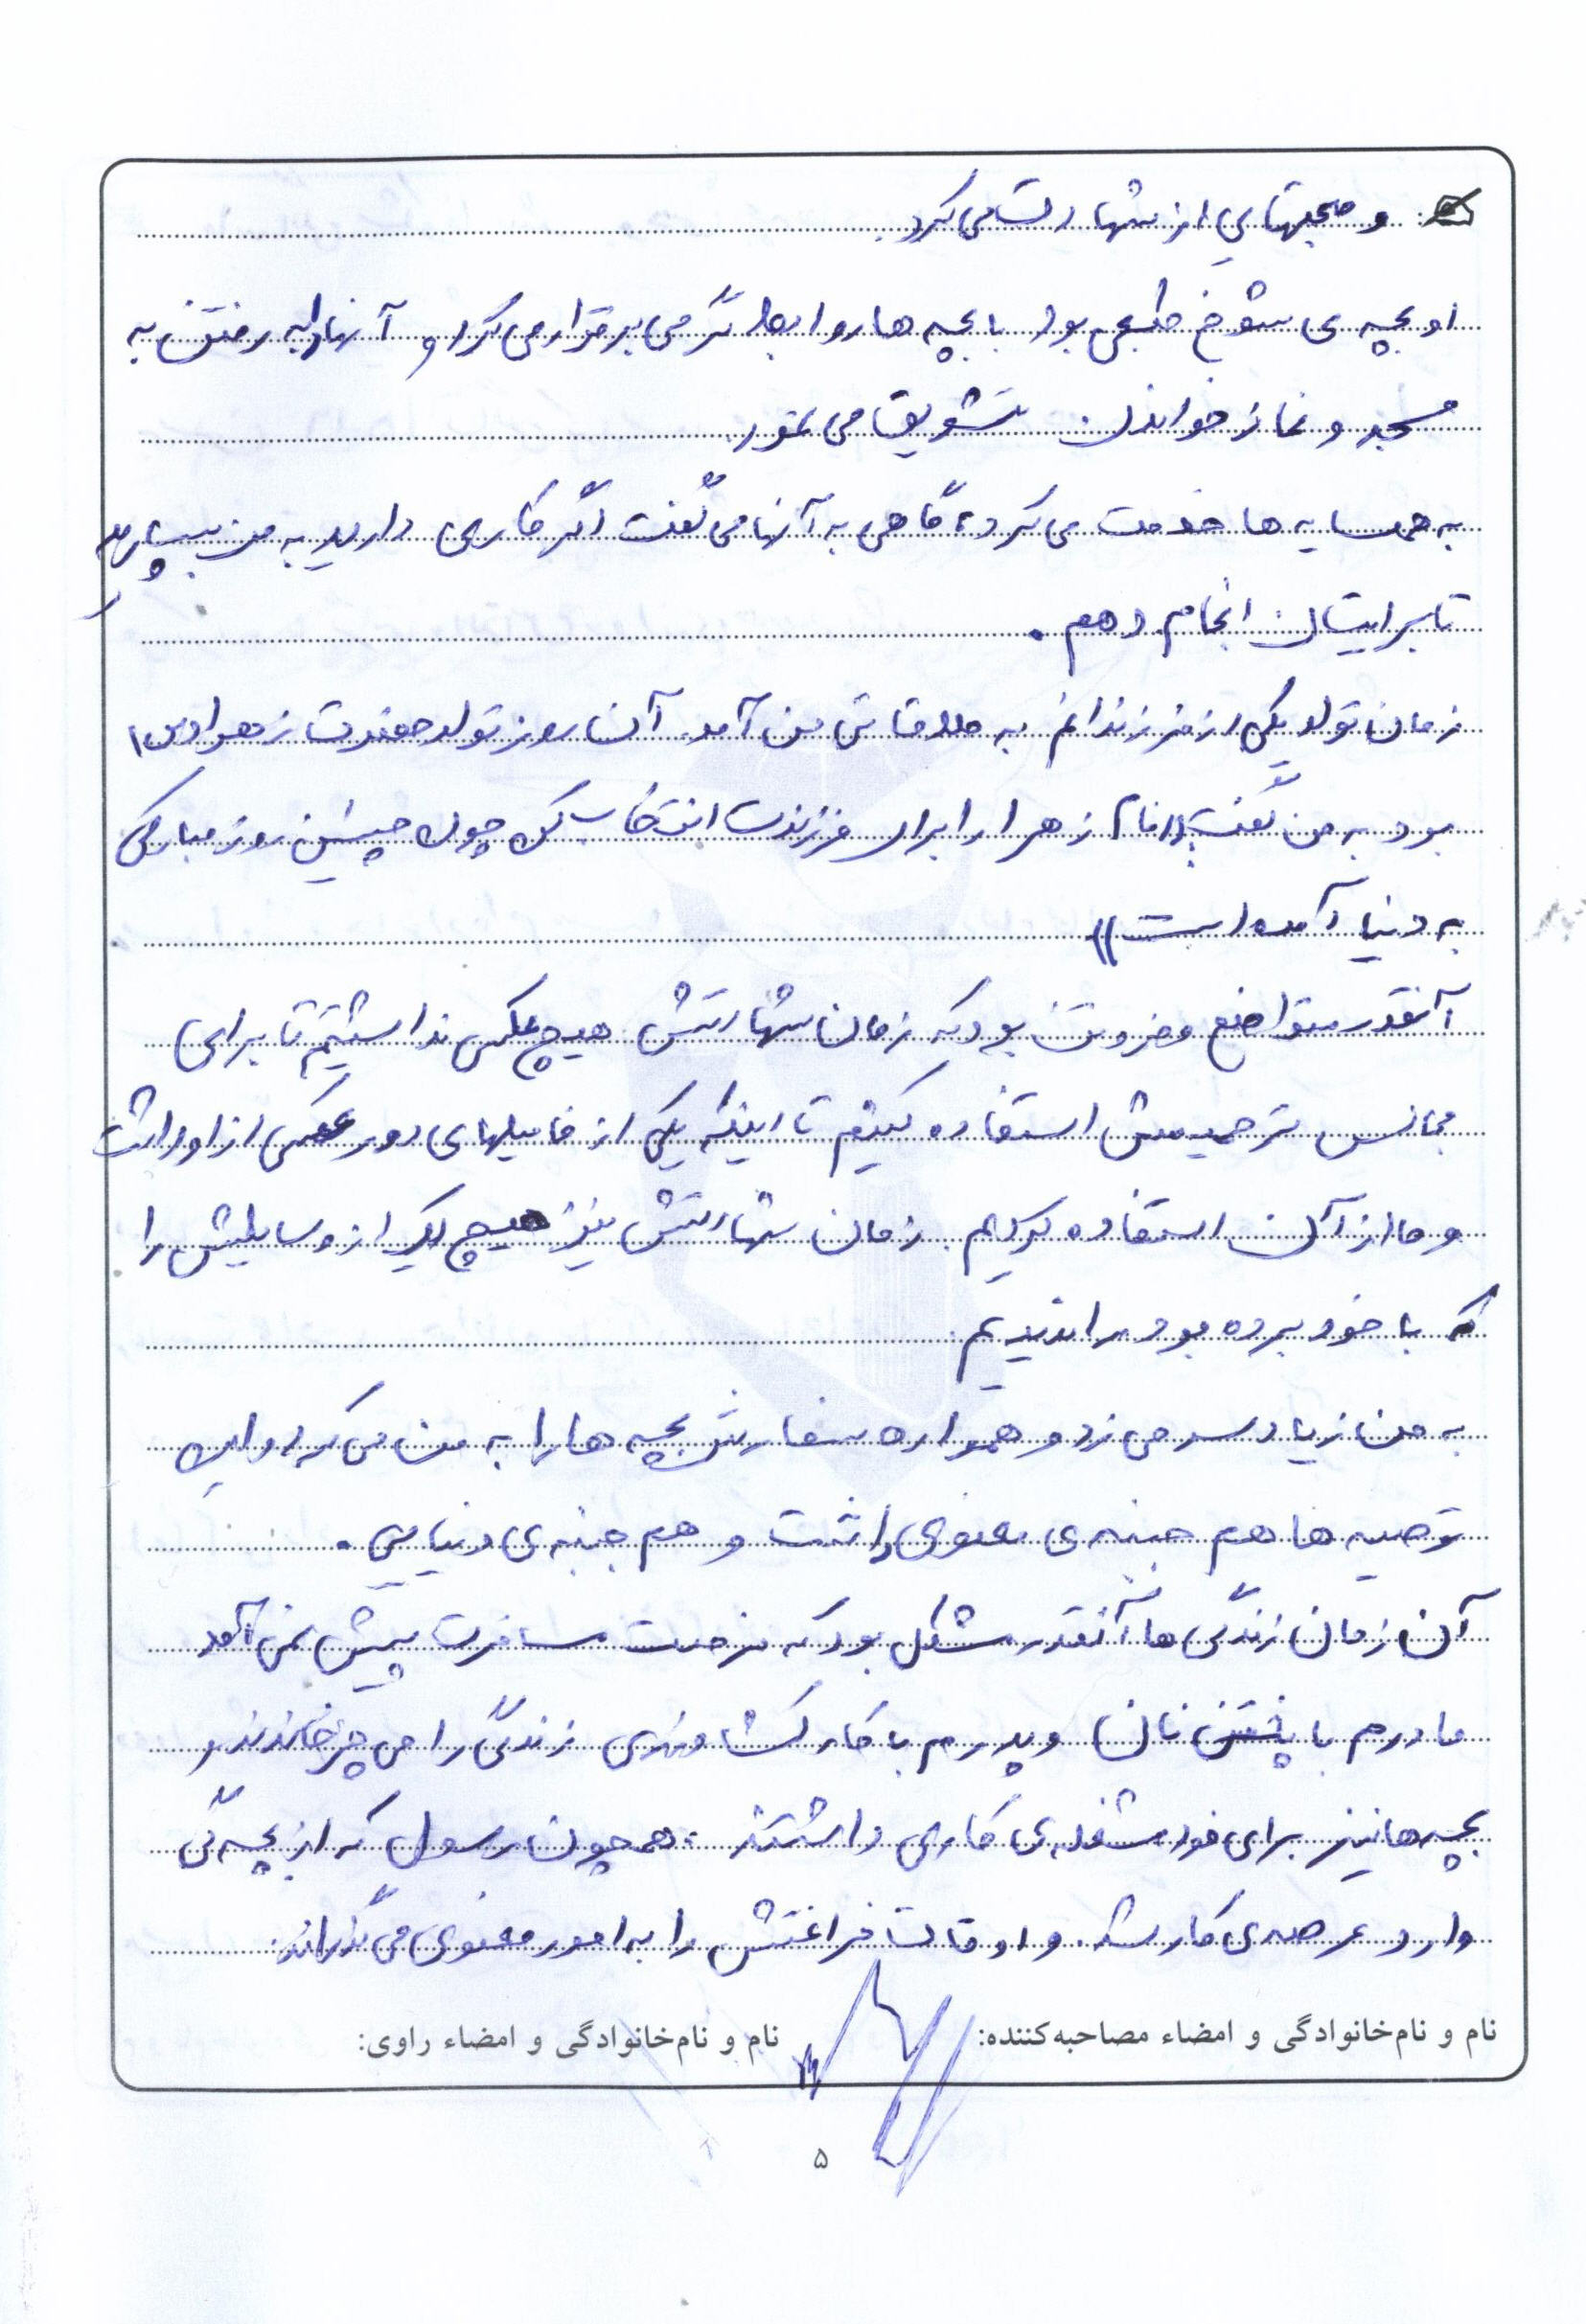 و صحبتهایی از شهادت می کرد.
او بچه ی شوخ طبعی بود با بچه ها روابط گرمی برقرار می کرد و آنها را به رفتن به
مسجد و نماز خواندن تشویق می نمود.
به همسایه ها خدمت می کرد، گاهی به آنها می گفت اگر کاری دارید به من بسپارید
تا برایتان انجام دهم.
زمان تولد یکی از فرزندانم به ملاقاتی من آمد. آن روز تولد حضرت زهرا (س)
بود به من گفت: ((نام زهرا را برای فرزندت انتخاب کن چون چنین روز مبارکی
به دنیا آمده است))
آنقدر متواضع و فروتن بود که زمان شهادتش هیچ عکسی نداشتیم تا برای
مجالس ترحیمش استفاده کنیم تا اینکه یکی از فامیلهای دور عکسی از او داشت
و ما از آن استفاده کردیم. زمان شهادتش نیز هیچ یک از وسایلش را
که با خود برده بود را ندیدیم.
به من زیاد سر می زد و همواره سفارش بچه ها را به من می کرد و این
توصیه ها هم جنبه ی معنوی داشت و هم جنبه ی دنیایی.
آن زمان زندگی ها آنقدر مشکل بود که فرصت مسافرت پیش نمی آمد
مادرم با پختن نان و پدرم با کار کشاورزی زندگی را می چرخاندند و
بچه ها نیز برای خود مشغله ی کاری داشتند. همچون رسول که از بچه گی
وارد عرصه ی کار شد. و اوقات فراغتش را به امور معنوی می گذراند.
نام و نام‌خانوادگی و امضاء مصاحبه‌کننده: نام و نام‌خانوادگی و امضاء راوی:
۵